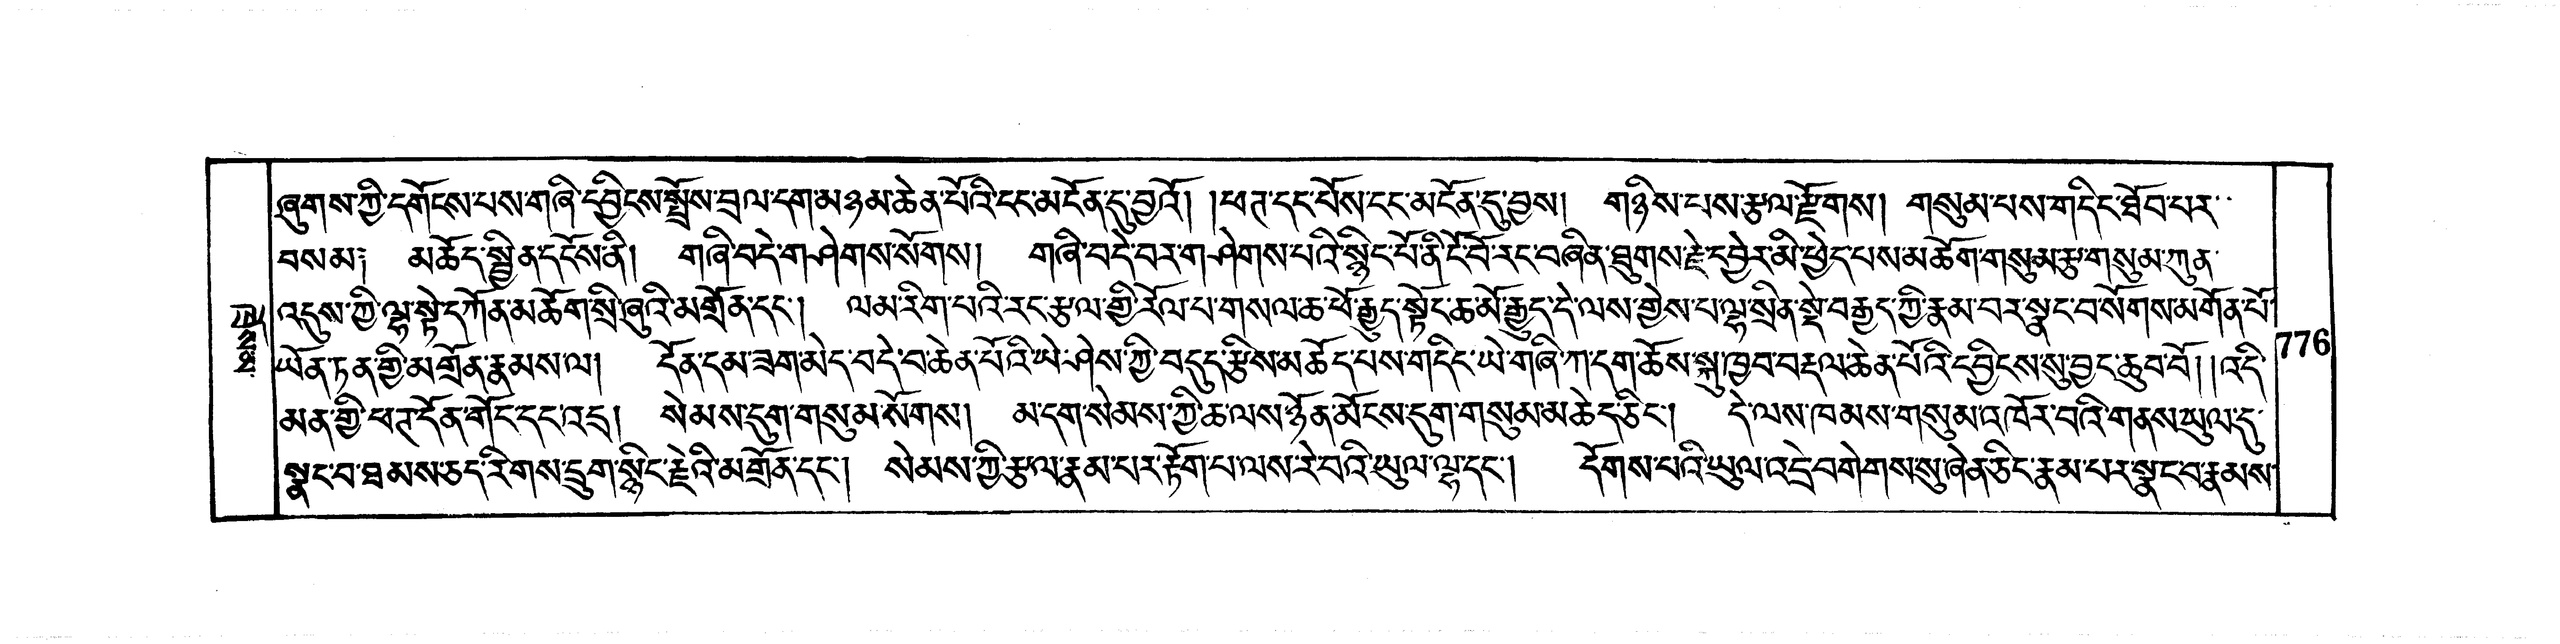 ཞུགས་ཀྱི་དགོངས་པས་གཞི་དབྱིངས་སྤྲོས་བྲལ་དག་མཉམ་ཆེན་པོའི་ངང་མངོན་དུ་བྱའོ། །ཕཊ་དང་པོས་ངང་མངོན་དུ་བྱས། གཉིས་པས་རྩལ་རྫོགས། གསུམ་པས་གདིང་ཐོབ་པར་
བསམ༔ མཆོད་སྦྱིན་དངོས་ནི། གཞི་བདེ་གཤེགས་སོགས། གཞི་བདེ་བར་གཤེགས་པའི་སྙིང་པོ་ནི་ངོ་བོ་རང་བཞིན་ཐུགས་རྗེ་དབྱེར་མི་ཕྱེད་པས་མཆོག་གསུམ་རྩ་གསུམ་ཀུན་
འདུས་ཀྱི་ལྷ་སྟེ་དཀོན་མཆོག་སྲི་ཞུའི་མགྲོན་དང་། ལམ་རིག་པའི་རང་རྩལ་གྱི་རོལ་པ་གསལ་ཆ་ཕོ་རྒྱུད་སྟོང་ཆ་མོ་རྒྱུད་དེ་ལས་གྱེས་པ་ལྷ་སྲིན་སྡེ་བརྒྱད་ཀྱི་རྣམ་བར་སྣང་བ་སོགས་མགོན་པོ་
ཡོན་ཏན་གྱི་མགྲོན་རྣམས་ལ། དོན་དམ་ཟག་མེད་བདེ་བ་ཆེན་པོའི་ཡེ་ཤེས་ཀྱི་བདུད་རྩིས་མཆོད་པས་གདིང་ཡེ་གཞི་ཀ་དག་ཆོས་སྐུ་ཁྱབ་བརྡལ་ཆེན་པོའི་དབྱིངས་སུ་བྱང་ཆུབ་བོ། །འདི་
མན་གྱི་ཕཊ་དོན་གོང་དང་འདྲ། སེམས་དུག་གསུམ་སོགས། མ་དག་སེམས་ཀྱི་ཆ་ལས་ཉོན་མོངས་དུག་གསུམ་མཆེད་ཅིང་། དེ་ལས་ཁམས་གསུམ་འཁོར་བའི་གནས་ཡུལ་དུ་
སྣང་བ་ཐམས་ཅད་རིགས་དྲུག་སྙིང་རྗེའི་མགྲོན་དང་། སེམས་ཀྱི་རྩལ་རྣམ་པར་རྟོག་པ་ལས་རེ་བའི་ཡུལ་ལྷ་དང་། དོགས་པའི་ཡུལ་འདྲེ་བགེགས་སུ་ཞེན་ཅིང་རྣམ་པར་སྣང་བ་རྣམས་
776